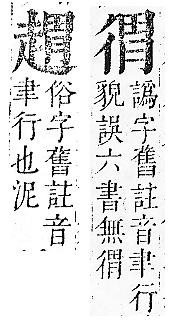 譌字舊註音聿行
貌誤六書無
俗字舊註音
聿行也泥